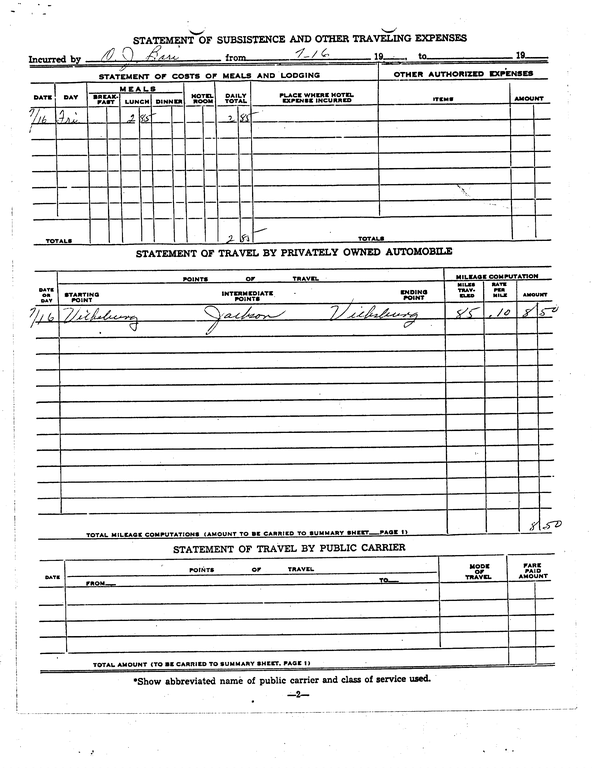 STATEMENT OF SUBSISTENCE AND OTHER TRAVELING EXPENSES
Incurred by O. J. from 7-16 19 to 19
STATEMENT OF COSTS OF MEALS AND LODGING OTHER AUTHORIZED EXPENSES
DATE DAY MEALS BREAK-FAST LUNCH DINNER HOTEL ROOM DAILY TOTAL PLACE WHERE HOTEL EXPENSE INCURRED ITEMS AMOUNT
7/16 Fri 2 85 2 85
TOTALS 2 85 TOTALS
STATEMENT OF TRAVEL BY PRIVATELY OWNED AUTOMOBILE
POINTS OF TRAVEL MILEAGE COMPUTATION
DATE OR DAY STARTING POINT INTERMEDIATE POINTS ENDING POINT MILES TRAV-ELED RATE PER MILE AMOUNT
7/16 Vicksburg Jackson Vicksburg 85 .10 8 50
TOTAL MILEAGE COMPUTATIONS (AMOUNT TO BE CARRIED TO SUMMARY SHEET—PAGE 1) 8 50
STATEMENT OF TRAVEL BY PUBLIC CARRIER
DATE POINTS OF TRAVEL MODE OF TRAVEL FARE PAID AMOUNT
FROM— TO—
TOTAL AMOUNT (TO BE CARRIED TO SUMMARY SHEET, PAGE 1)
*Show abbreviated name of public carrier and class of service used.
—2—